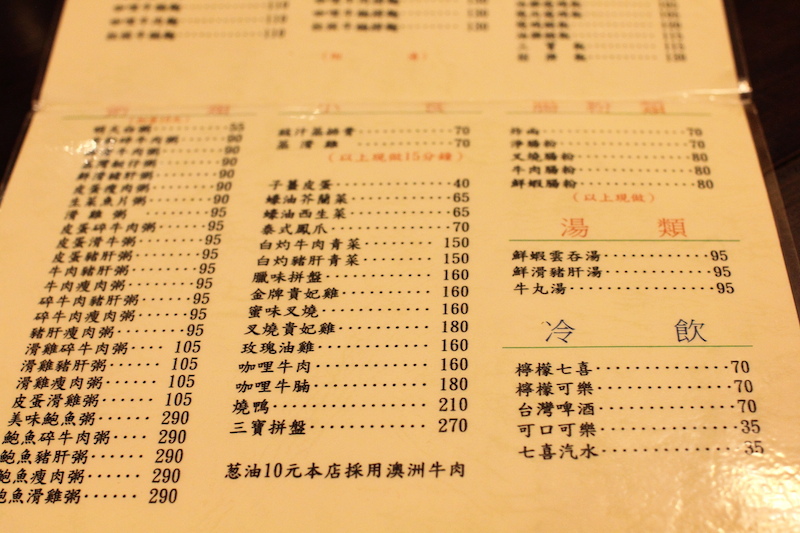 粥類
明火白粥 55
碎牛肉粥 90
牛肉粥 90
艇仔粥 90
鮮滑豬肝粥 90
皮蛋瘦肉粥 90
生菜魚片粥 90
滑雞粥 95
皮蛋碎牛肉粥 95
皮蛋滑牛粥 95
皮蛋豬肝粥 95
牛肉豬肝粥 95
牛肉瘦肉粥 95
碎牛肉豬肝粥 95
碎牛肉瘦肉粥 95
豬肝瘦肉粥 95
滑雞碎牛肉粥 105
滑雞豬肝粥 105
滑雞瘦肉粥 105
皮蛋滑雞粥 105
美味鮑魚粥 290
鮑魚碎牛肉粥 290
鮑魚豬肝粥 290
鮑魚瘦肉粥 290
鮑魚滑雞粥 290
豉汁蒸排骨 70
蒸滑雞 70
(以上現做15分鐘)
子薑皮蛋 40
蠔油芥蘭菜 65
蠔油西生菜 65
泰式鳳爪 70
白灼牛肉青菜 150
白灼豬肝青菜 150
臘味拼盤 160
金牌貴妃雞 160
蜜味叉燒 160
叉燒貴妃雞 180
玫瑰油雞 160
咖哩牛肉 160
咖哩牛腩 180
燒鴨 210
三寶拼盤 270
蔥油10元本店採用澳洲牛肉
腸粉類
炸兩 70
淨腸粉 70
叉燒腸粉 80
牛肉腸粉 80
鮮蝦腸粉 80
(以上現做)
湯類
鮮蝦雲吞湯 95
鮮滑豬肝湯 95
牛丸湯 95
冷飲
檸檬七喜 70
檸檬可樂 70
台灣啤酒 70
可口可樂 35
七喜汽水 35